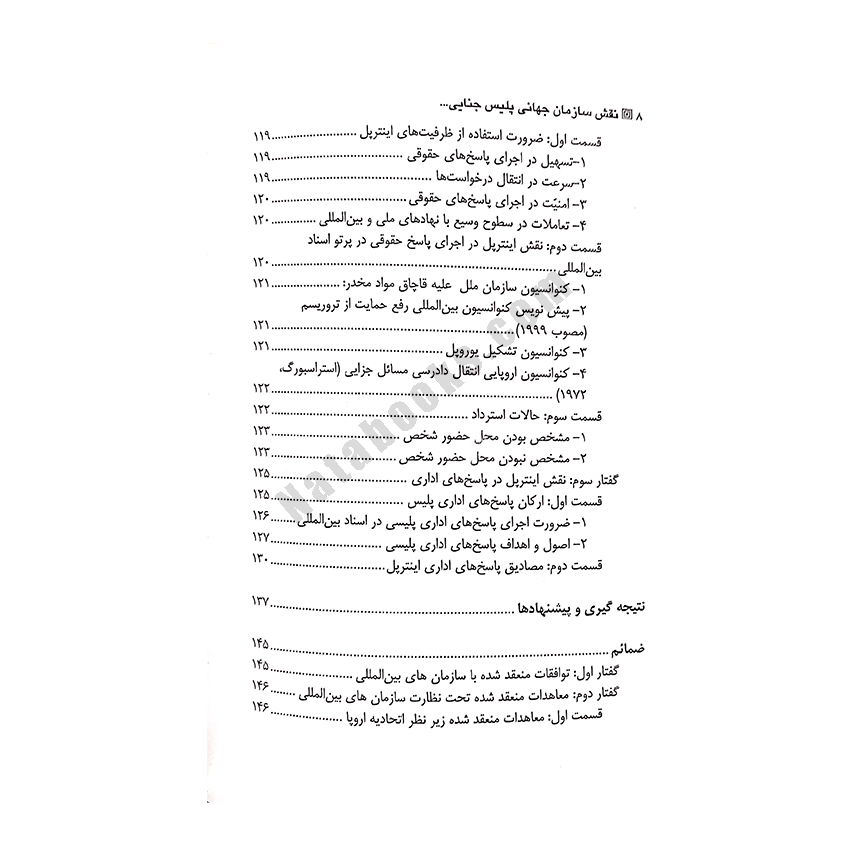 ۸ نقش سازمان جهانی پلیس جنایی...
قسمت اول: ضرورت استفاده از ظرفیت‌های اینترپل ............ ۱۱۹
۱-تسهیل در اجرای پاسخ‌های حقوقی ............ ۱۱۹
۲-سرعت در انتقال درخواست‌ها ............ ۱۱۹
۳- امنیّت در اجرای پاسخ‌های حقوقی ............ ۱۲۰
۴- تعاملات در سطوح وسیع با نهادهای ملی و بین‌المللی ............ ۱۲۰
قسمت دوم: نقش اینترپل در اجرای پاسخ حقوقی در پرتو اسناد
بین‌المللی ............ ۱۲۰
۱- کنوانسیون سازمان ملل علیه قاچاق مواد مخدر: ............ ۱۲۱
۲- پیش نویس کنوانسیون بین‌المللی رفع حمایت از تروریسم
(مصوب ۱۹۹۹) ............ ۱۲۱
۳- کنوانسیون تشکیل یوروپل ............ ۱۲۱
۴- کنوانسیون اروپایی انتقال دادرسی مسائل جزایی (استراسبورگ،
۱۹۷۲) ............ ۱۲۲
قسمت سوم: حالات استرداد ............ ۱۲۲
۱- مشخص بودن محل حضور شخص ............ ۱۲۳
۲- مشخص نبودن محل حضور شخص ............ ۱۲۳
گفتار سوم: نقش اینترپل در پاسخ‌های اداری ............ ۱۲۵
قسمت اول: ارکان پاسخ‌های اداری پلیس ............ ۱۲۵
۱- ضرورت اجرای پاسخ‌های اداری پلیسی در اسناد بین‌المللی ........ ۱۲۶
۲- اصول و اهداف پاسخ‌های اداری پلیسی ............ ۱۲۷
قسمت دوم: مصادیق پاسخ‌های اداری اینترپل ............ ۱۳۰
نتیجه گیری و پیشنهادها ............ ۱۳۷
ضمائم ............ ۱۴۵
گفتار اول: توافقات منعقد شده با سازمان های بین‌المللی ............ ۱۴۵
گفتار دوم: معاهدات منعقد شده تحت نظارت سازمان های بین‌المللی ........ ۱۴۶
قسمت اول: معاهدات منعقد شده زیر نظر اتحادیه اروپا ............ ۱۴۶
Natabooks.com